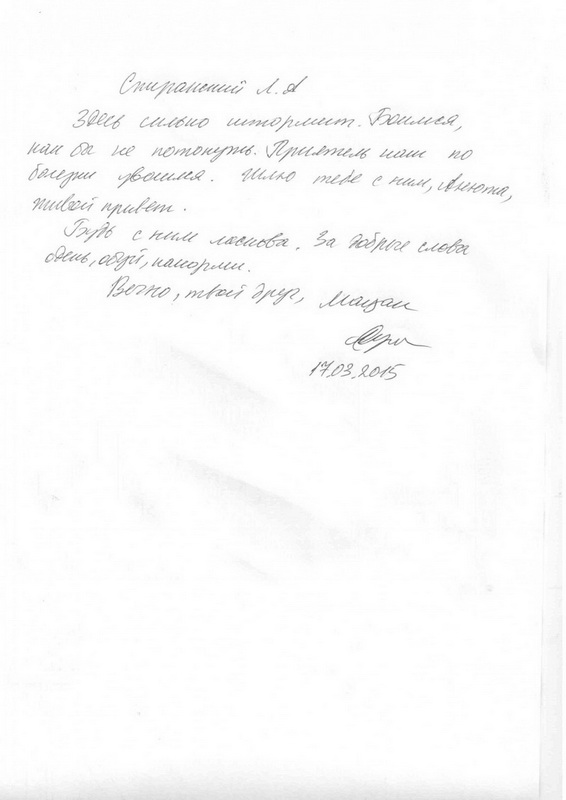 Спиранский Л. А
Здесь сильно штормит. Боимся,
как бы не потонуть. Приятель наш по
болезни уволился. Шлю тебе с ним, Анюта,
живой привет.
Будь с ним ласкова. За добрые слова
одень, обуй, накорми.
Вечно, твой друг,
17.03.2015